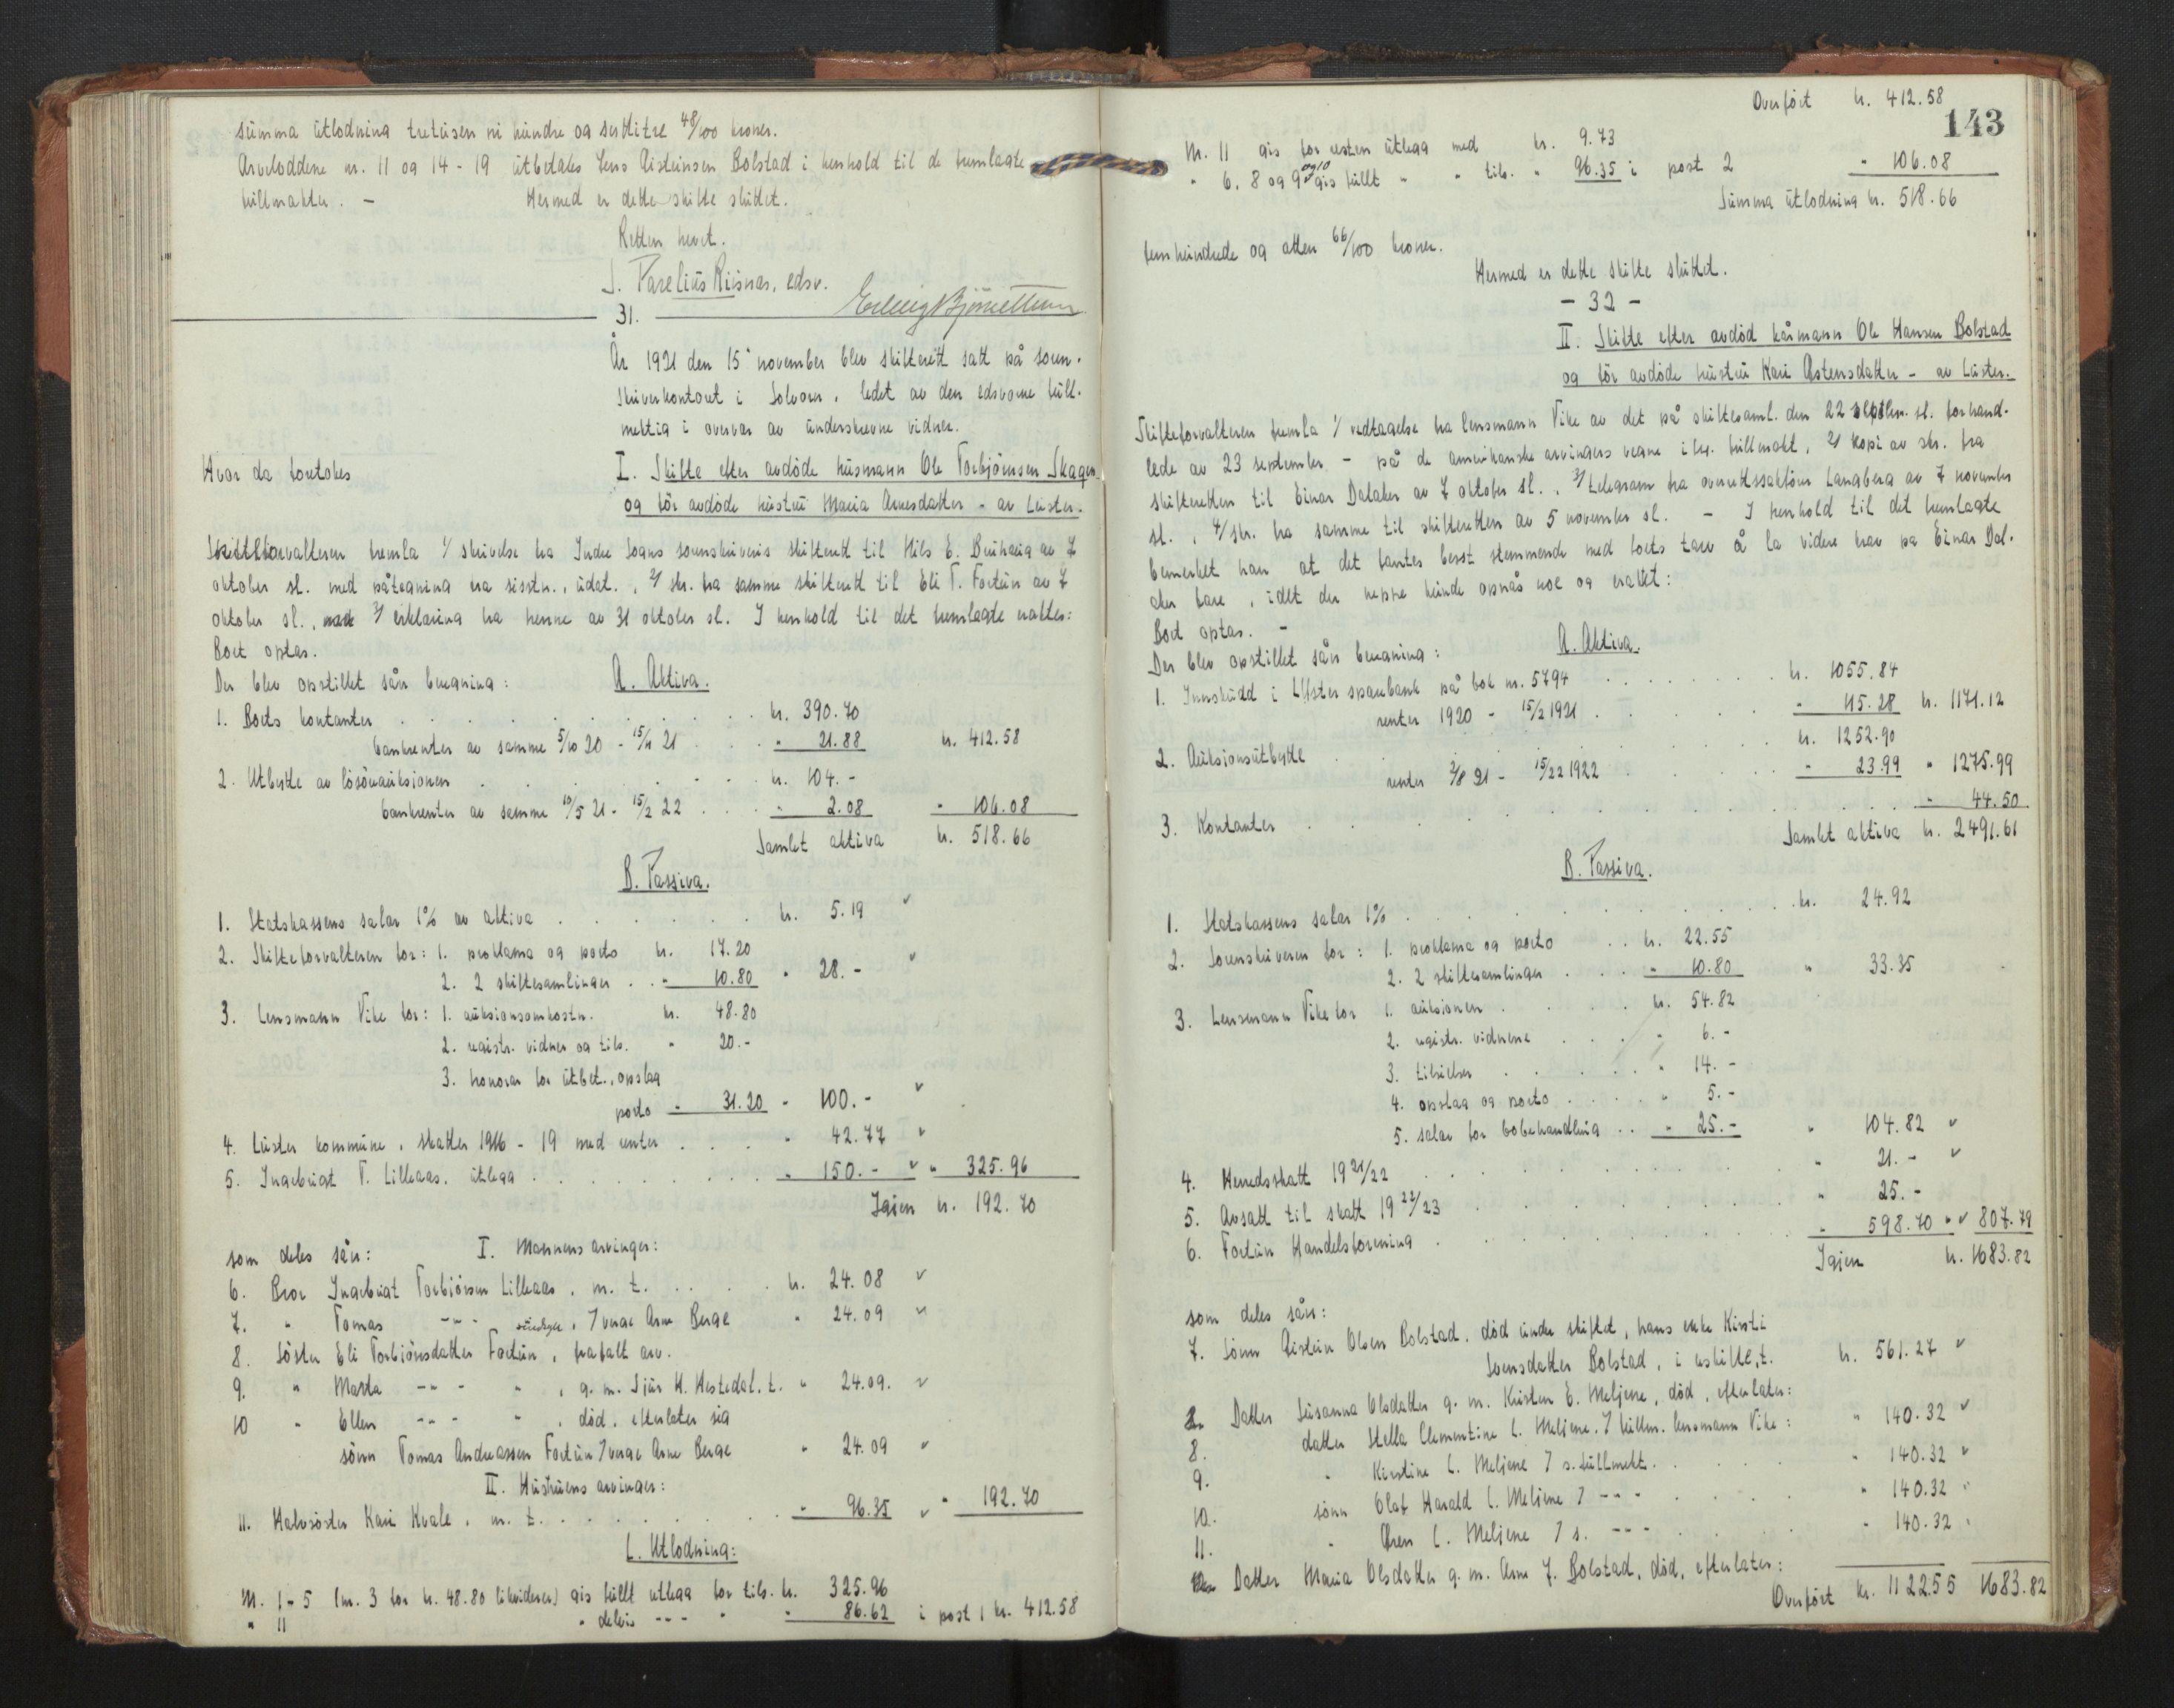 Summa utlodning tretusen ni hundre og sekstitre 48/100 kroner.
Arveloddene nr. 11 og 14 - 19 utbetales Jens Aisteinsen Bolstad i henhold til de fremlagte
fullmakter. - Hermed er dette skifte sluttet.
Retten hevet.
J. Parelius Risnes, edsv.
31.
År 1921 den 15' november blev skifterett satt på soren-
skriverkontoret i Solvorn, ledet av den edsvorne full-
mektig i overvær av underskrevne vidner.
Hvor da foretokes
I. Skifte efter avdöde husmann Ole Torbjörnsen Skagen
og för avdöde hustru Maria Arnesdatter - av Luster.
Skifteforvalteren fremla 1/ skrivelse fra Indre Sogns sorenskriveris skifterett til Nils E. av 7
oktober sl. med påtegning fra sisstn., udat., 2/ skr. fra samme skifterett til Eli T. Fortun av 7
oktober sl., 3/ erklæring fra henne av 31 oktober sl. I henhold til det fremlagte vaktes:
Boet optas.
Der blev opstillet sån beregning: A. Aktiva.
1. Boets kontanter . . . kr. 390.70
bankrenter av samme 5/10 20 - 15/11 21 . . " 21.88 kr. 412.58
2. Utbytte av lösöreauksjonen . . . kr. 104.-
bankrenter av samme 10/5 21 - 15/2 22 . . . " 2.08 " 106.08
Samlet aktiva kr. 518.66
B. Passiva.
1. Statskassens salær 1% av aktiva . . . kr. 5.19
2. Skifteforvalteren for: 1. proklama og porto kr. 17.20
2. 2 skiftesamlinger . . " 10.80 " 28.-
3. Lensmann Vike for: 1. auksjonsomkostn. kr. 48.80
2. registr. vidner og tils. " 20.-
3. honorar for utbet., opslag
porto " 31.20 " 100.-
4. Luster kommune, skatter 1916 - 19 med renter . . . " 42.77
5. Ingebrigt T. Lilleaas, utlegg . . . " 150.- " 325.96
Igjen kr. 192.70
som deles sån: I. Mannens arvinger:
6. Bror Ingebrigt Torbjörnsen Lilleaas, m. t. . . . kr. 24.08
7. " Tomas -"- , / verge Arne Berge " 24.09
8. Söster Eli Torbjörnsdatter Fortun, frafalt arv.
9. " Marta -"- " , g. m. Sjur H. Hestedal, t. " 24.09.
10 " Ellen -"- " , död, efterlater sig
sönn Tomas Andreassen Fortun / verge Arne Berge " 24.09
II. Hustruens arvinger:
11. Halvsöster Kari Kvale, m. t. . . . " 96.35 " 192.70
C. Utlodning:
Nr. 1-5 (nr. 3 for kr. 48.80 likviderer) gis fullt utlegg for tils. kr. 325.96
" 11 " delvis -"- " " 86.62 i post 1 kr. 412.58
Overfört kr. 412.58
143
Nr. 11 gis for resten utlegg med kr. 9.73
" 6, 8 og 9 og 10 gis fullt " " tils. " 96.35 i post 2 " 106.08
Summa utlodning kr. 518.66
femhundrede og atten 66/100 kroner.
Hermed er dette skifte sluttet.
- 32 -
II. Skifte efter avdöd kårmann Ole Hansen Bolstad
og för avdöde hustru Kari Østensdatter - av Luster.
Skifteforvalteren fremla 1/ vedtagelse fra lensmann Vike av det på skiftesaml. den 22 septbr. sl. forhand-
lede av 23 september - på de amerikanske arvingers vegne iflg. fullmakt, 2/ kopi av skr. fra
skifteretten til Einar Dalaker av 7 oktober sl., 3/ telegram fra overrettssakförer Langberg av 7 november
sl., 4/ skr. fra samme til skifteretten av 5 november sl. - I henhold til det fremlagte
bemerket han at det fantes best stemmende med boets tarv å la videre krav på Einar Dal-
aker fare, idet der neppe kunde opnås noe og vaktet:
Boet optas. -
Der blev opstillet sån beregning: A. Aktiva.
1. Innskudd i Luster sparebank på bok nr. 5794 . . . kr. 1055.84
renter 1920 - 15/2 1921 . . . " 115.28 kr. 1171.12
2. Auksjonsutbytte . . . kr. 1252.90
renter 2/8 21 - 15/22 1922 . . . " 23.99 " 1275.99
3. Kontanter . . . " 44.50
Samlet aktiva kr. 2491.61
B. Passiva.
1. Statskassens salær 1% . . . kr. 24.92
2. Sorenskriveren for: 1. proklama og porto . . kr. 22.55
2. 2 skiftesamlinger . . . " 10.80 " 33.35
3. Lensmann Vike for 1. auksjonen . . . kr. 54.82
2. registr. vidnene . . . " 6.-
3. tilsielser . . . " 14.-
4. opslag og porto . . . " 5.-
5. salær for bobehandling . . " 25.- " 104.82
4. Herredsskatt 1921/22 . . . " 21.-
5. Avsatt til skatt 1922/23 . . . " 25.-
6. Fortun Handelsforening . . . " 598.70 " 807.79
Igjen kr. 1683.82
som deles sån:
7. Sönn Aistein Olsen Bolstad, död under skiftet, hans enke Kirsti
Jensdatter Bolstad, i uskifte, t. kr. 561.27
Datter Susanna Olsdatter g. m. Kristen E. Meljene, död, efterlater:
8. datter Stella Clementine C. Meljene, / fullm. lensmann Vike: " 140.32
9. " Kirstine C. Meljene / s. fullmekt. . . . " 140.32
10. sönn Olaf Harald C. Meljene / -"- . . . " 140.32
11. " Oren C. Meljene / s. -"- . . . " 140.32
Datter Maria Olsdatter g. m. Arne J. Bolstad, död, efterlater:
Overfört kr. 1122.55 1683.82